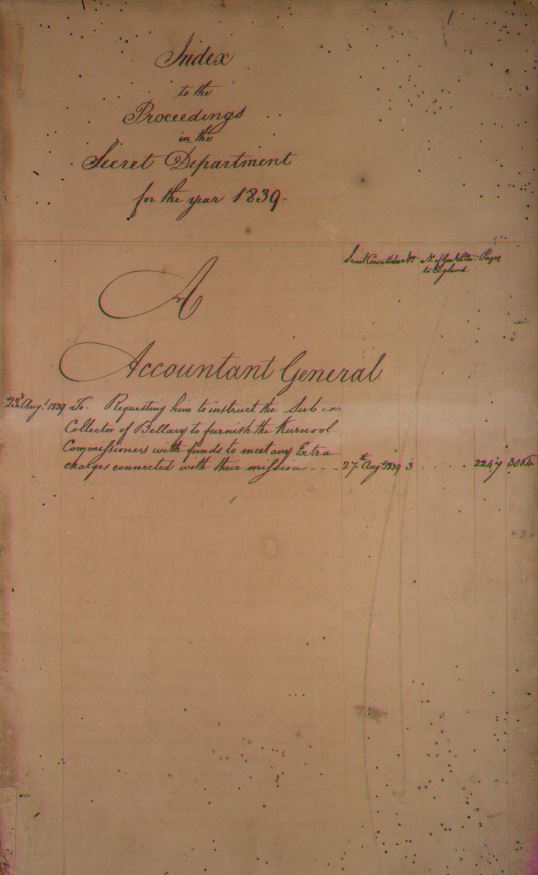 Index
to the
Proceedings
in the
Secret Department
for the year 1839.
Pages
to England
A
Accountant General
23d Augt. 1839 To. Requesting him to instruct the Sub
Collector of Bellary to furnish the Kurnool
Commissioners with funds to meet any Extra
charges connected with their mission - - - 27th Augt 1839 3